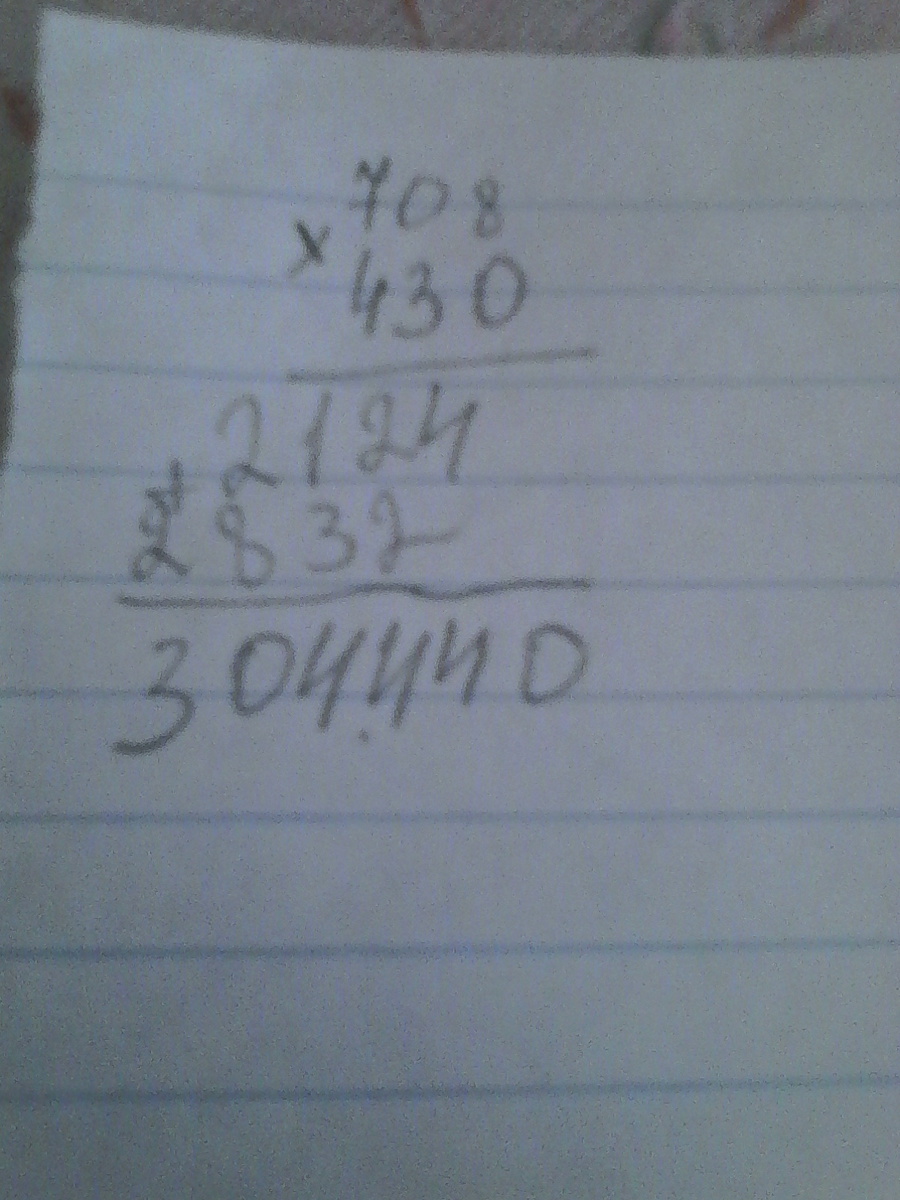 708
x
430
2124
+
2832
304.440